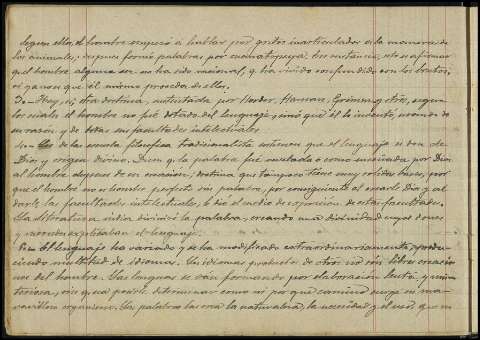 Segun ella, el hombre empezó á hablar por gritos inarticulados á la manera de
los animales; despues formó palabras por onomatopeya. En sustancia, esto es afirmar
que el hombre alguna vez no ha sido racional, y ha vivido confundido con los brutos,
si ya no es que él mismo procede de ellos.
3o.- Hay, sí, otra doctrina, sustentada por Herder, Haman, Grimm y otros, segun
los cuales el hombre no fué dotado del lenguaje, sino que él lo inventó, usando de
su razon y de todas sus facultades intelectuales.
4o.- Los de la escuela filosófica tradicionalista sostienen que el lenguaje es don de
Dios y orígen divino. Dicen q. la palabra fué enseñada ó como inspirada por Dios
al hombre despues de su creacion; doctrina que tampoco tiene muy sólidas bases, por
que el hombre no es hombre perfecto sin palabra, por consiguiente al crearle Dios y al
darle las facultades intelectuales, le dió el medio de expresion de estas facultades.
La literatura india divinizó la palabra, creando una divinidad cuyos dones
y acciones explicaban el lenguaje.
El lenguaje ha variado y se ha modificado extraordinariamente, produ-
ciendo multitud de idiomas. Un idioma producto de otro no son libres creacio-
nes del hombre. Las lenguas se van formando por elaboracion lenta y mis-
teriosa, sin que pueda determinar como ni por qué camino surge su ma-
ravilloso organismo. Las palabras las crea la naturaleza, la necesidad y el uso, que en